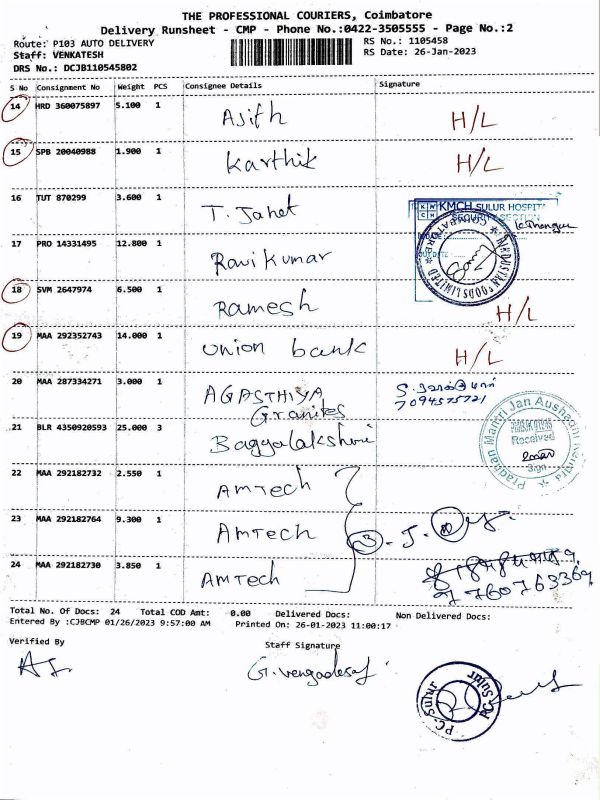 THE PROFESSIONAL COURIERS, Coimbatore
Delivery Runsheet - CMP - Phone No.:0422-3505555 - Page No.:2
Route: P103 AUTO DELIVERY
RS No.: 1105458
Staff: VENKATESH
RS Date: 26-Jan-2023
DRS No.: DCJB110545802
S No Consignment No Weight PCS Consignee Details Signature
14 HRD 360075897 5.100 1 Asith H/L
15 SPB 20040988 1.900 1 Karthik H/L
16 TUT 870299 3.600 1 T. Janet
KMCH SULUR HOSPITAL
SECURITY SECTION
17 PRO 14331495 12.800 1 Ravi Kumar
HINDUSTAN FOODS LIMITED
COIMBATORE
18 SVM 2647974 6.500 1 Ramesh H/L
19 MAA 292352743 14.000 1 Union bank H/L
20 MAA 287334271 3.000 1 AGASTHIYA
Granites
7094575721
21 BLR 4350920593 25.000 3 Baggyalakshmi
Pradhan Mantri Jan Aushadhi Kendra
Received
Sign
22 MAA 292182732 2.550 1 AMTech
23 MAA 292182764 9.300 1 AMTech 3
24 MAA 292182730 3.850 1 AMTech
9776076336
Total No. Of Docs: 24 Total COD Amt: 0.00 Delivered Docs: Non Delivered Docs:
Entered By :CJBCMP 01/26/2023 9:57:00 AM Printed On: 26-01-2023 11:00:17
Verified By
Staff Signature
G. Vengadesh
P.C. Sulur
P.C. Sulur